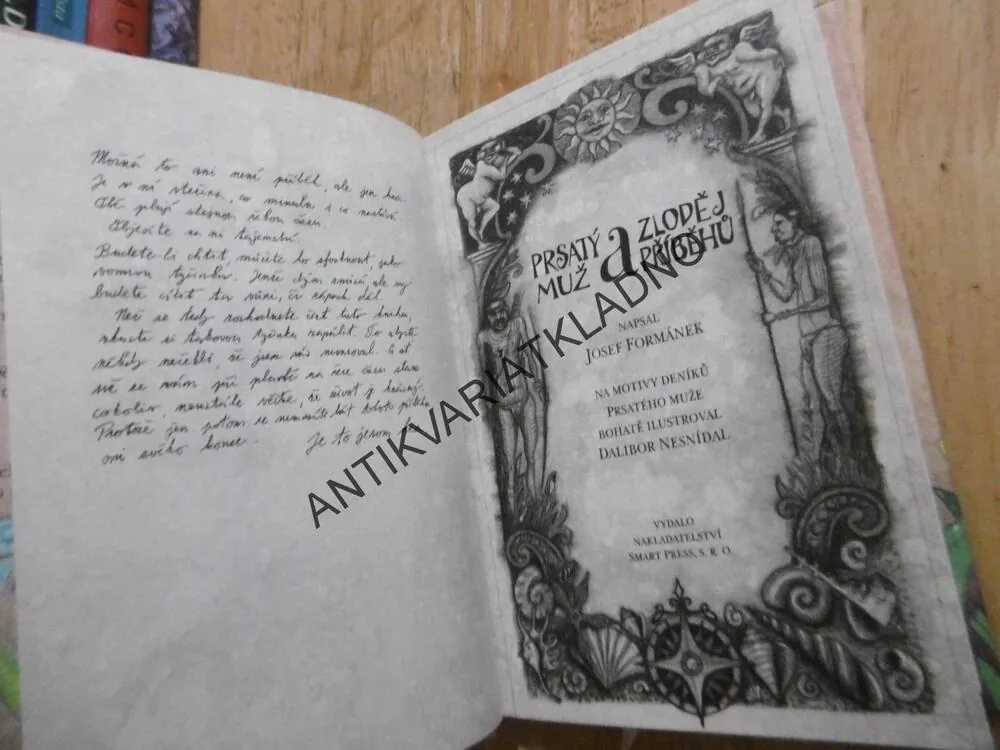 Možná to ani není příběh, ale jen
Je v ní všechno, co minulo i co
Obě plují stejnou řekou času.
Objevíte na ní tajemství.
Budete-li chtít, můžete ho sfouknout, jako
vonnou tyčinku. Jenže dým zmizí, ale vy
budete cítit tu vůni, čí nápach dál.
Než se tedy rozhodnete číst tuto knihu,
zkuste si takovou tyčinku zapálit. To abyste
někdy neřekli, že jsem vás nevaroval. A ať
se vám při plavbě na řece času stane
cokoliv, neustále věřte, že život je krásný.
Protože jen potom se nemusíte bát tohoto příběhu
ani svého konce.
Je to jenom
PRSATÝ
MUŽ
a
ZLODĚJ
PŘÍBĚHŮ
NAPSAL
JOSEF FORMÁNEK
NA MOTIVY DENÍKŮ
PRSATÉHO MUŽE
BOHATĚ ILUSTROVAL
DALIBOR NESNÍDAL
VYDALO
NAKLADATELSTVÍ
SMART PRESS, S. R. O.
ANTIKVARIÁTKLADNO